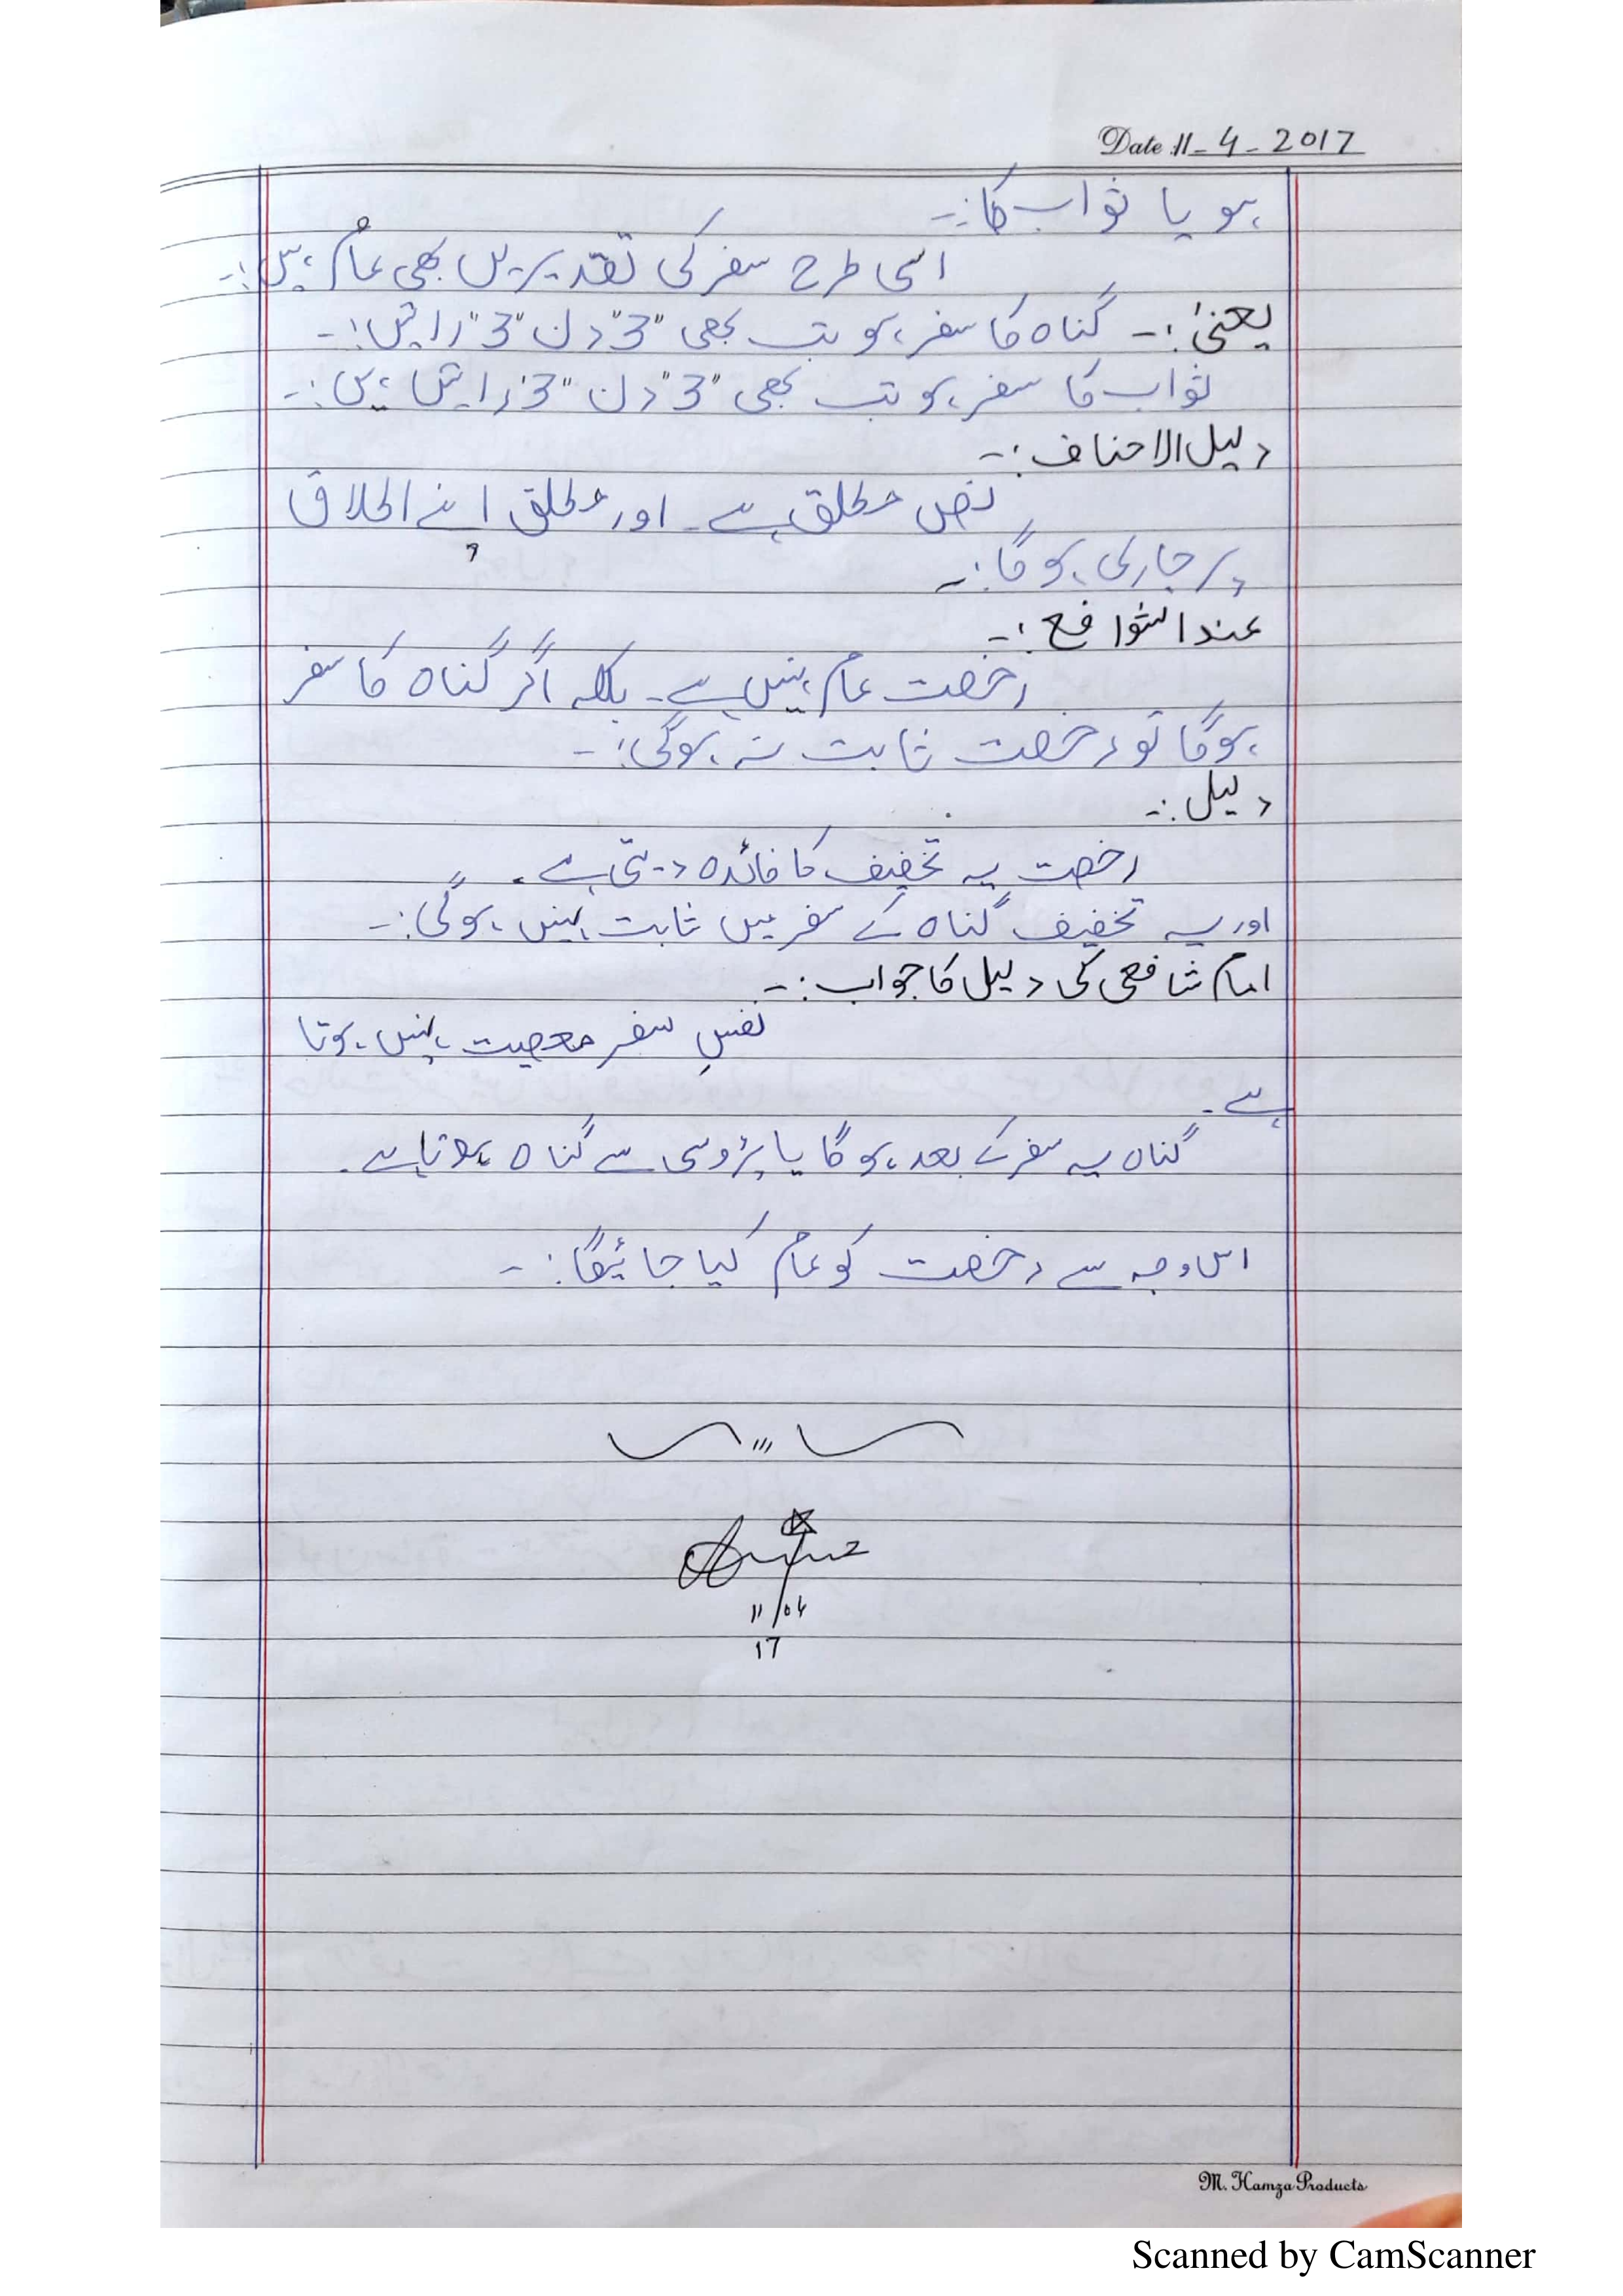 Date 11-4-2017
ہو یا ثواب کا:-
اسی طرح سفر کی تقدیریں بھی عام ہیں:-
یعنی:- گناہ کا سفر ہو تب بھی "3" دن "3" راتیں:-
ثواب کا سفر ہو تب بھی "3" دن "3" راتیں ہیں:-
دلیل الاحناف:-
نص مطلق ہے۔ اور مطلق اپنے اطلاق
پر جاری ہوگا:-
عند الشوافع:-
رخصت عام نہیں ہے۔ بلکہ اگر گناہ کا سفر
ہوگا تو رخصت ثابت نہ ہوگی:-
دلیل:-
رخصت یہ تخفیف کا فائدہ دیتی ہے۔
اور یہ تخفیف گناہ کے سفر میں ثابت نہیں ہوگی:-
امام شافعی کی دلیل کا جواب:-
نفسِ سفر معصیت نہیں ہوتا
ہے۔
گناہ یہ سفر کے بعد ہوگا یا پڑوسی سے گناہ ہوتا ہے۔
اس وجہ سے رخصت کو عام کیا جائیگا:-
11/04
17
M. Hamza Products
Scanned by CamScanner